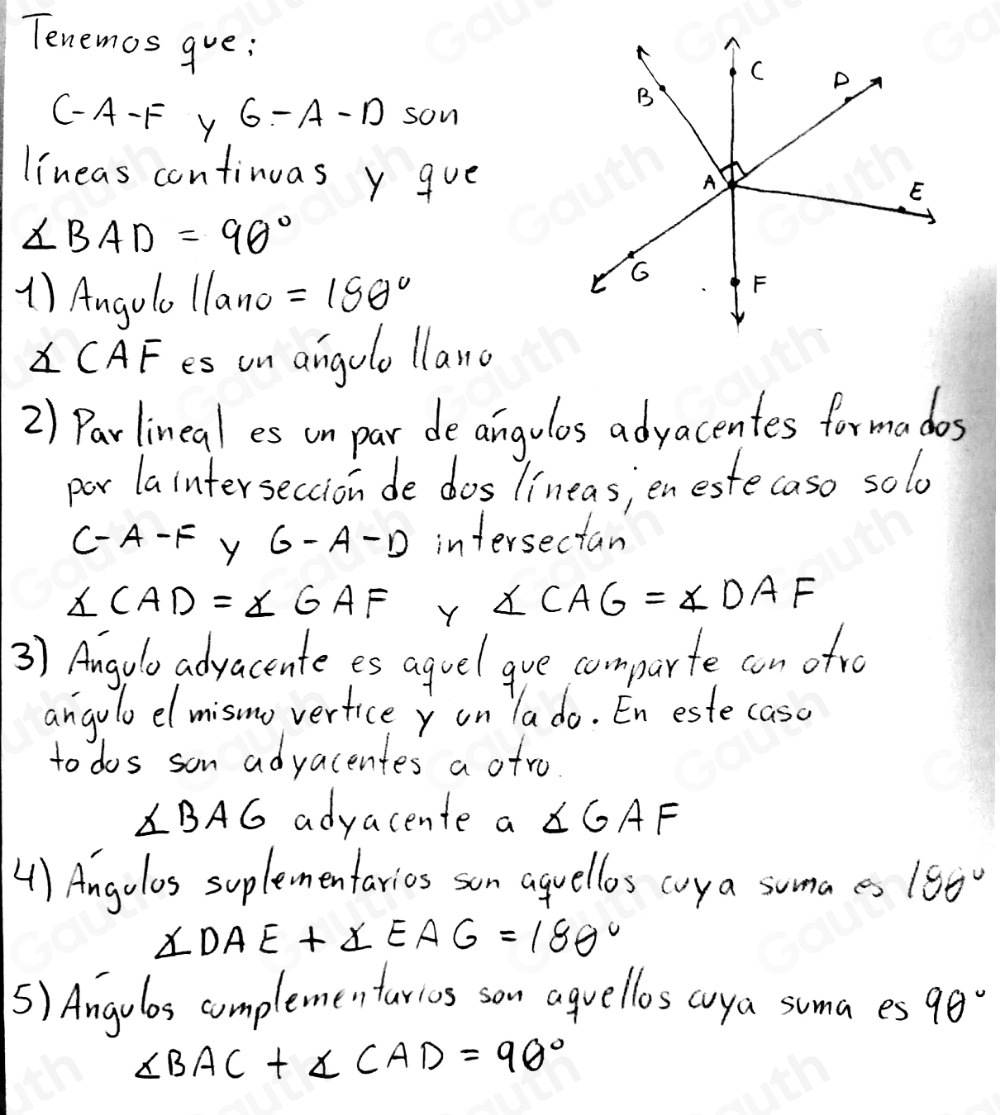 Tenemos que:
C-A-F y G-A-D son
líneas continuas y que
∡BAD = 90°
1) Angulo llano = 180°
∡ CAF es un ángulo llano
2) Par lineal es un par de ángulos adyacentes formados
por la intersección de dos líneas, en este caso solo
C-A-F y G-A-D intersectan
∡ CAD = ∡ GAF y ∡ CAG = ∡ DAF
3) Ángulo adyacente es aquel que comparte con otro
ángulo el mismo vertice y un lado. En este caso
todos son adyacentes a otro.
∡BAG adyacente a ∡GAF
4) Ángulos suplementarios son aquellos cuya suma es 180°
∡DAE + ∡EAG = 180°
5) Ángulos complementarios son aquellos cuya suma es 90°
∡BAC + ∡ CAD = 90°
C
D
B
A
E
G
F
Gauth